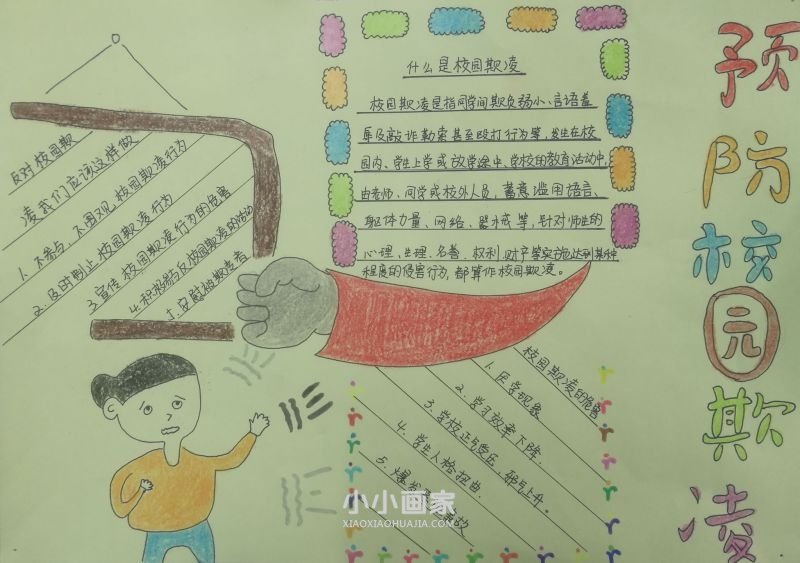 预防校园欺凌
什么是校园欺凌
校园欺凌是指同学间欺负弱小、言语羞
辱及敲诈勒索甚至殴打行为等,发生在校
园内、学生上学或放学途中、学校的教育活动中,
由老师、同学或校外人员,蓄意滥用语言、
躯体力量、网络、器械等,针对师生的
心理、生理、名誉、权利、财产等实施达到某种
程度的侵害行为,都算作校园欺凌。
反对校园欺
凌我们应该这样做
1. 不参与、不围观校园欺凌行为
2. 及时制止校园欺凌行为
3. 宣传校园欺凌行为的危害
4. 积极参与反校园欺凌的活动
5. 安慰被欺凌者
校园欺凌的危害
1. 厌学现象
2. 学习效率下降.
3. 学校正气受压、邪气上升.
4. 学生人格扭曲.
5. 爆发
小小画家
XIAOXIAOHUAJIA.COM